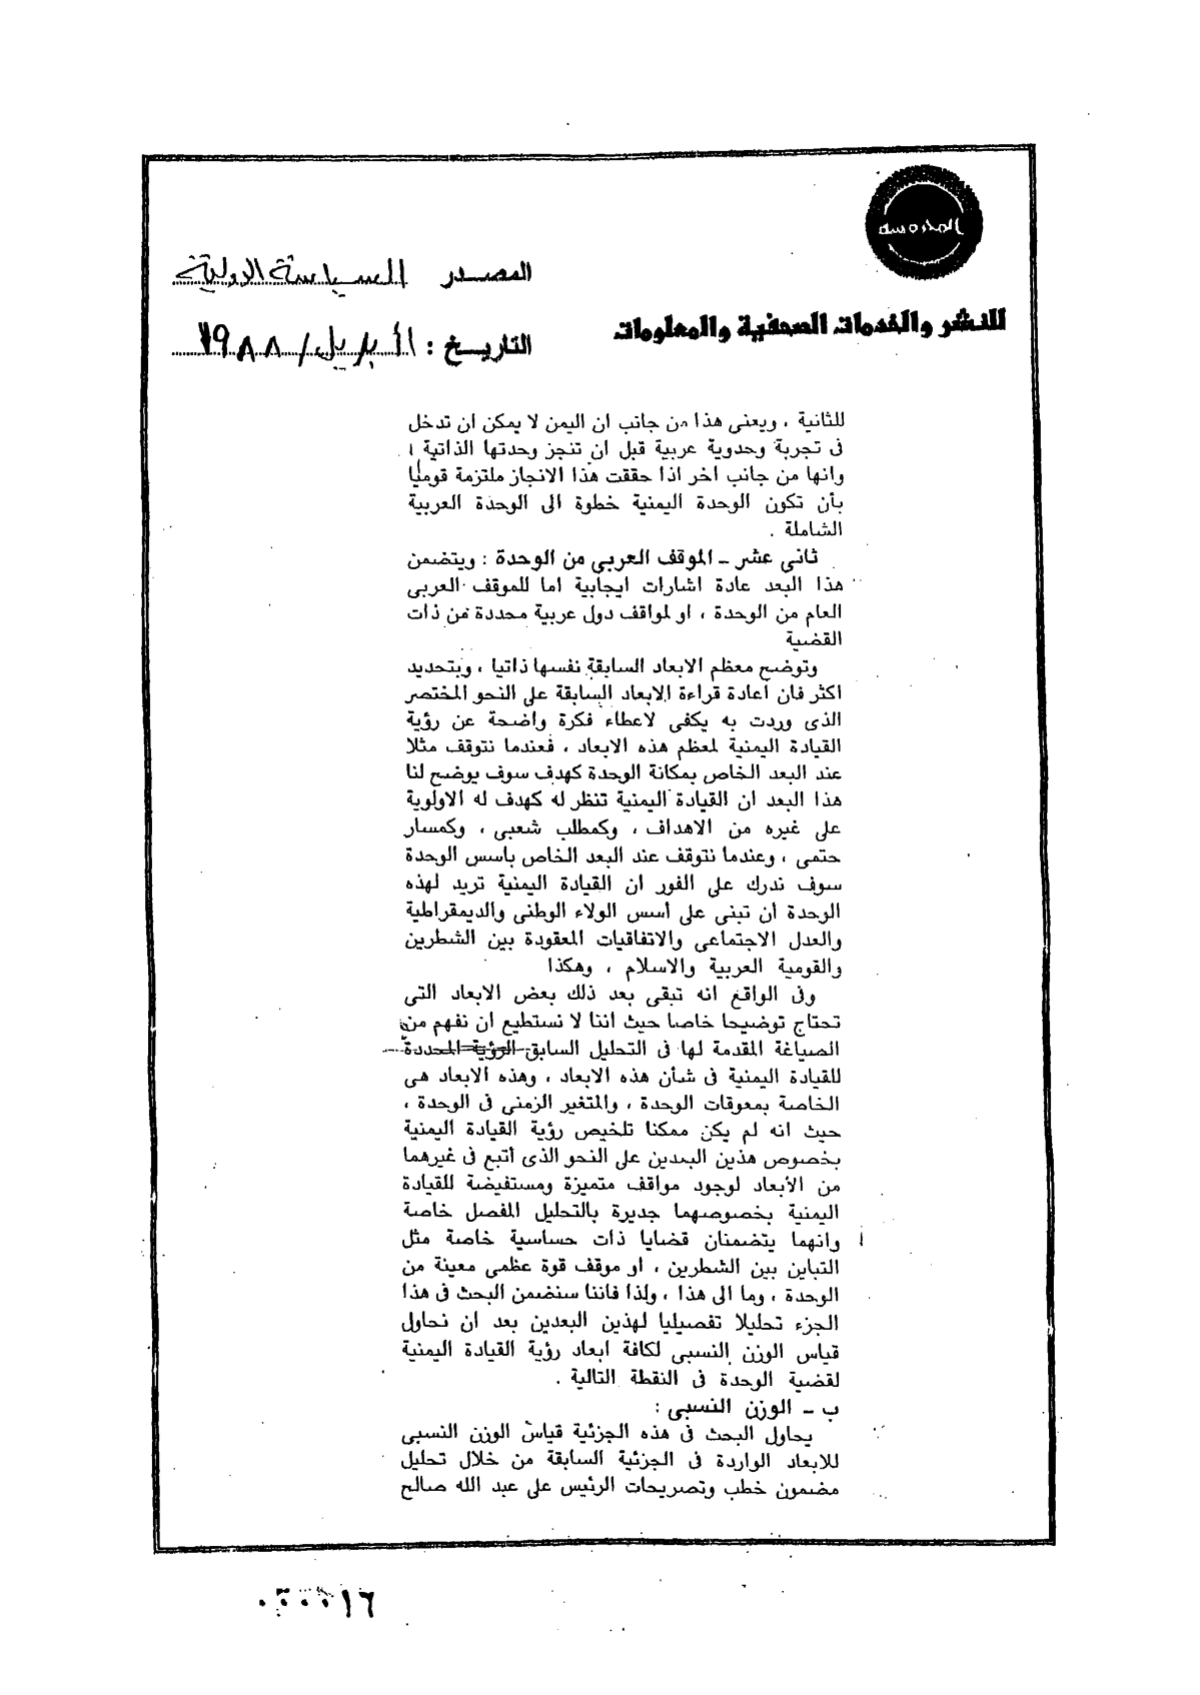 المدوسة
للنشر والخدمات الصحفية والمعلومات
المصدر السياسة الدولية
التاريخ : أبريل / ١٩٨٨
للثانية ، ويعنى هذا من جانب ان اليمن لا يمكن ان تدخل
فى تجربة وحدوية عربية قبل ان تنجز وحدتها الذاتية ،
وانها من جانب اخر اذا حققت هذا الانجاز ملتزمة قوميا
بأن تكون الوحدة اليمنية خطوة الى الوحدة العربية
الشاملة .
ثانى عشر ـ الموقف العربى من الوحدة : ويتضمن
هذا البعد عادة اشارات ايجابية اما للموقف العربى
العام من الوحدة ، او لمواقف دول عربية محددة من ذات
القضية
وتوضح معظم الابعاد السابقة نفسها ذاتيا ، وبتحديد
اكثر فان اعادة قراءة الابعاد السابقة على النحو المختصر
الذى وردت به يكفى لاعطاء فكرة واضحة عن رؤية
القيادة اليمنية لمعظم هذه الابعاد ، فعندما نتوقف مثلا
عند البعد الخاص بمكانة الوحدة كهدف سوف يوضح لنا
هذا البعد ان القيادة اليمنية تنظر له كهدف له الاولوية
على غيره من الاهداف ، وكمطلب شعبى ، وكمسار
حتمى ، وعندما نتوقف عند البعد الخاص باسس الوحدة
سوف ندرك على الفور ان القيادة اليمنية تريد لهذه
الوحدة أن تبنى على أسس الولاء الوطنى والديمقراطية
والعدل الاجتماعى والاتفاقيات المعقودة بين الشطرين
والقومية العربية والاسلام ، وهكذا
وفى الواقع انه تبقى بعد ذلك بعض الابعاد التى
تحتاج توضيحا خاصا حيث اننا لا نستطيع ان نفهم من
الصياغة المقدمة لها فى التحليل السابق الرؤية المحددة
للقيادة اليمنية فى شأن هذه الابعاد ، وهذه الابعاد هى
الخاصة بمعوقات الوحدة ، والمتغير الزمنى فى الوحدة ،
حيث انه لم يكن ممكنا تلخيص رؤية القيادة اليمنية
بخصوص هذين البعدين على النحو الذى أتبع فى غيرهما
من الأبعاد لوجود مواقف متميزة ومستفيضة للقيادة
اليمنية بخصوصهما جديرة بالتحليل المفصل خاصة
وانهما يتضمنان قضايا ذات حساسية خاصة مثل
التباين بين الشطرين ، او موقف قوة عظمى معينة من
الوحدة ، وما الى هذا ، ولذا فاننا سنضمن البحث فى هذا
الجزء تحليلا تفصيليا لهذين البعدين بعد ان نحاول
قياس الوزن النسبى لكافة ابعاد رؤية القيادة اليمنية
لقضية الوحدة فى النقطة التالية .
ب ـ الوزن النسبى :
يحاول البحث فى هذه الجزئية قياس الوزن النسبى
للابعاد الواردة فى الجزئية السابقة من خلال تحليل
مضمون خطب وتصريحات الرئيس على عبد الله صالح